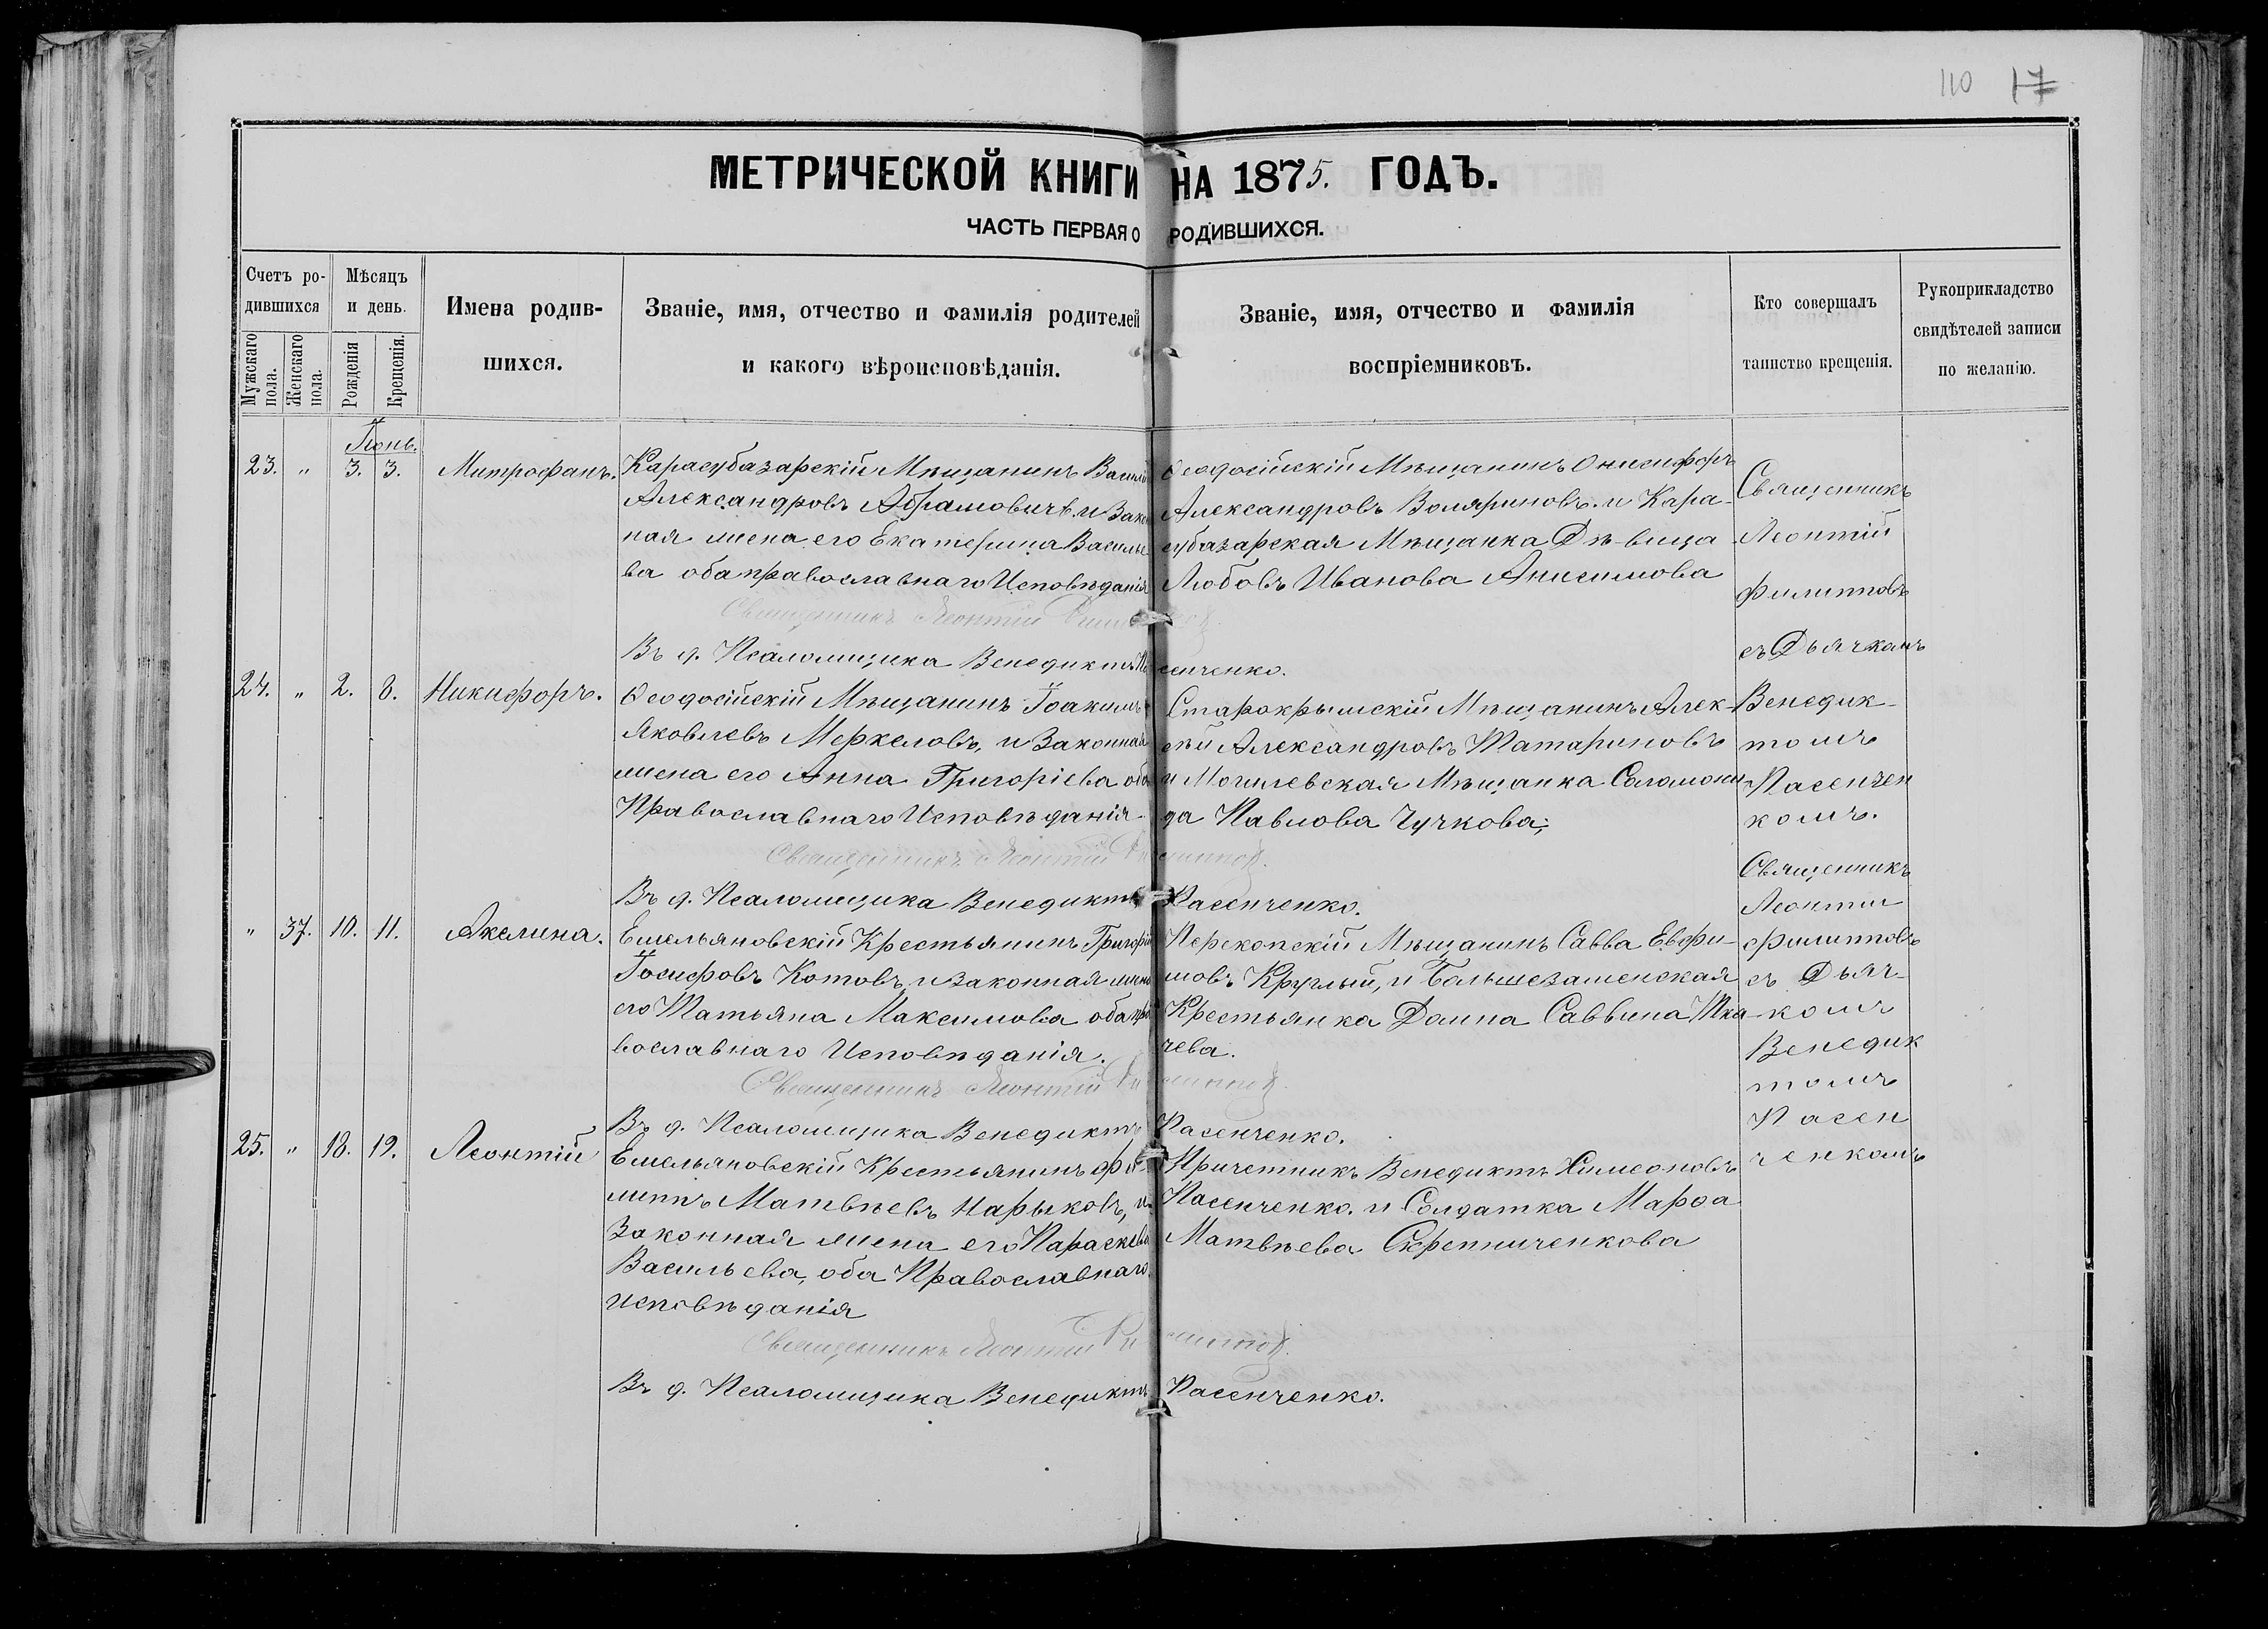 110 17
МЕТРИЧЕСКОЙ КНИГИ НА 1875. ГОДЪ.
ЧАСТЬ ПЕРВАЯ О РОДИВШИХСЯ.
Счетъ ро-
дившихся
Мужскаго пола.
Женскаго пола.
Мѣсяцъ
и день.
Рожденія
Крещенія.
Имена родив-
шихся.
Званіе, имя, отчество и фамилія родителей
и какого вѣроисповѣданія.
Званіе, имя, отчество и фамилія
воспріемниковъ.
Кто совершалъ
таинство крещенія.
Рукоприкладство
свидѣтелей записи
по желанію.
Іюнь.
23. " 3. 3. Митрофанъ.
Карасубазарскій Мѣщанинъ Василій
Александровъ Абрамовичъ. и Закон
ная жена его Екатерина Василье
ва оба православнаго Исповѣданія
Священникъ Леонтій Филипповъ
Въ д. Псаломщика Венедиктъ Пасенченко.
Ѳеодосійскій Мѣщанинъ Онисифоръ
Александровъ Воляриновъ. и Кара-
субазарская Мѣщанка Дѣ-вица
Любовь Иванова Анисимова
24. " 2. 8. Никифоръ.
Ѳеодосійскій Мѣщанинъ Іоакимъ
Яковлевъ Меркеловъ, и Законная
жена его Анна Григоріева оба
Православнаго Исповѣданія.
Священникъ Леонтій Филипповъ.
Въ д. Псаломщика Венедиктъ Пасенченко.
Старокрымскій Мѣщанинъ Алек-
сѣй Александровъ Татариновъ
и Могилевская Мѣщанка Саломони
да Павлова Чучкова;
" 37. 10. 11. Акелина.
Емельяновскій Крестьянинъ Григорій
Іосифовъ Котовъ, и Законная жена
его Татьяна Максимова оба пра
вославнаго Исповѣданія.
Священникъ Леонтій Филипповъ.
Въ д. Псаломщика Венедиктъ Пасенченко.
Перекопскій Мѣщанинъ Савва Евфи-
мовъ Круглый, и Большезаменская
Крестьянка Домна Саввина Тка-
чева.
25. " 18. 19. Леонтій
Емельяновскій Крестьянинъ Фи
липпъ Матвѣевъ Нарыковъ, и
Законная жена его Параскева
Васильева, оба Православнаго
Исповѣданія
Священникъ Леонтій Филипповъ.
Въ д. Псаломщика Венедиктъ Пасенченко.
Причетникъ Венедиктъ Симеоновъ
Пасенченко. и Солдатка Марѳа
Матвѣева
Священникъ
Леонтій
Филипповъ
съ Дьячкомъ
Венедик-
томъ
Пасенчен
комъ.
Священникъ
Леонтій
Филипповъ
съ Дьяч-
комъ
Венедик
томъ
Пасен
ченкомъ